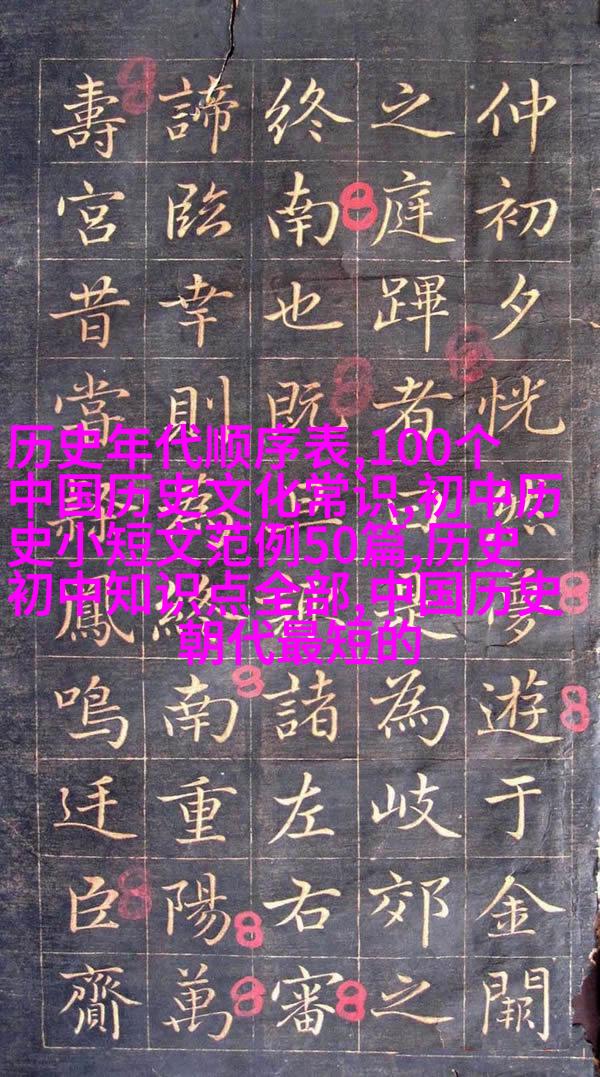 历史年代顺序表,100个
中国历史文化常识,初中历
史小短文范例50篇,历史
初中知识点全部,中国历史
朝代最短的
仲初夕恍夢遊于金闕
之庭蹕者是為岐郊之
終南也既諸左右審
諦臨幸則為終南重陽萬
壽宮昔鳳鳴廷臣齎